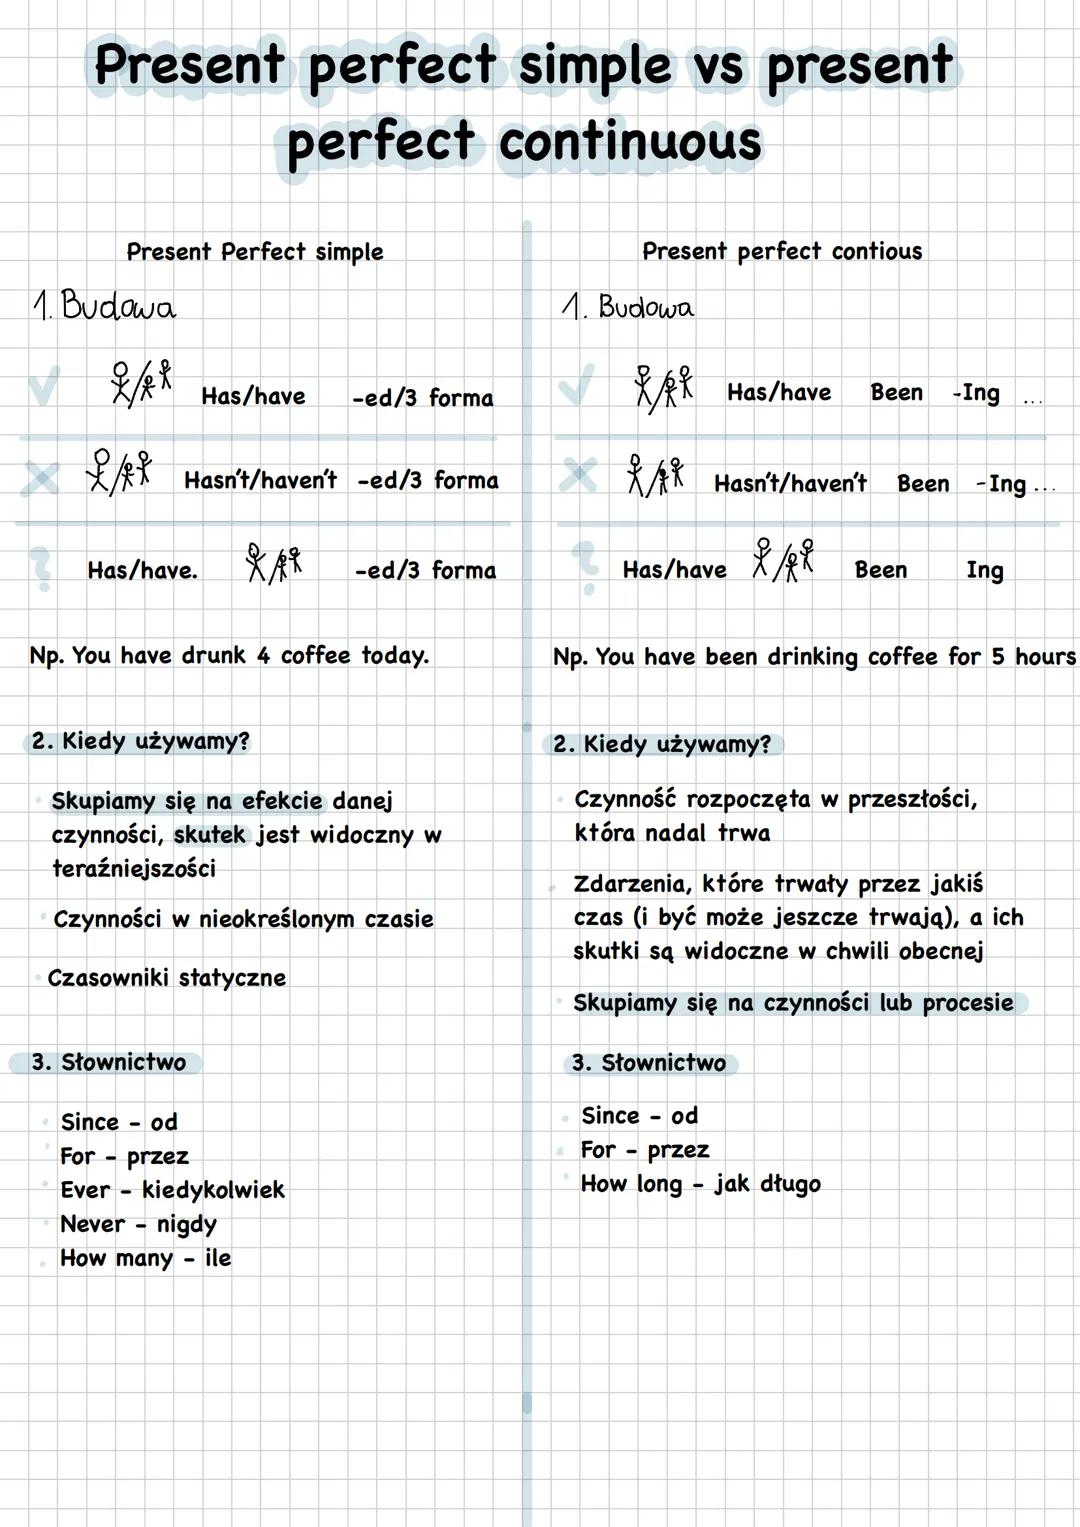 Present perfect simple vs present
perfect continuous
Present Perfect simple
1. Budowa
Has/have -ed/3 forma
Hasn't/haven't -ed/3 forma
Has/have. -ed/3 forma
Np. You have drunk 4 coffee today.
2. Kiedy używamy?
Skupiamy się na efekcie danej
czynności, skutek jest widoczny w
teraźniejszości
Czynności w nieokreślonym czasie
Czasowniki statyczne
3. Słownictwo
Since - od
For - przez
Ever - kiedykolwiek
Never - nigdy
How many - ile
Present perfect contious
1. Budowa
Has/have Been -Ing ...
Hasn't/haven't Been -Ing ...
Has/have Been Ing
Np. You have been drinking coffee for 5 hours
2. Kiedy używamy?
Czynność rozpoczęta w przeszłości,
która nadal trwa
Zdarzenia, które trwały przez jakiś
czas (i być może jeszcze trwają), a ich
skutki są widoczne w chwili obecnej
Skupiamy się na czynności lub procesie
3. Słownictwo
Since - od
For - przez
How long - jak długo